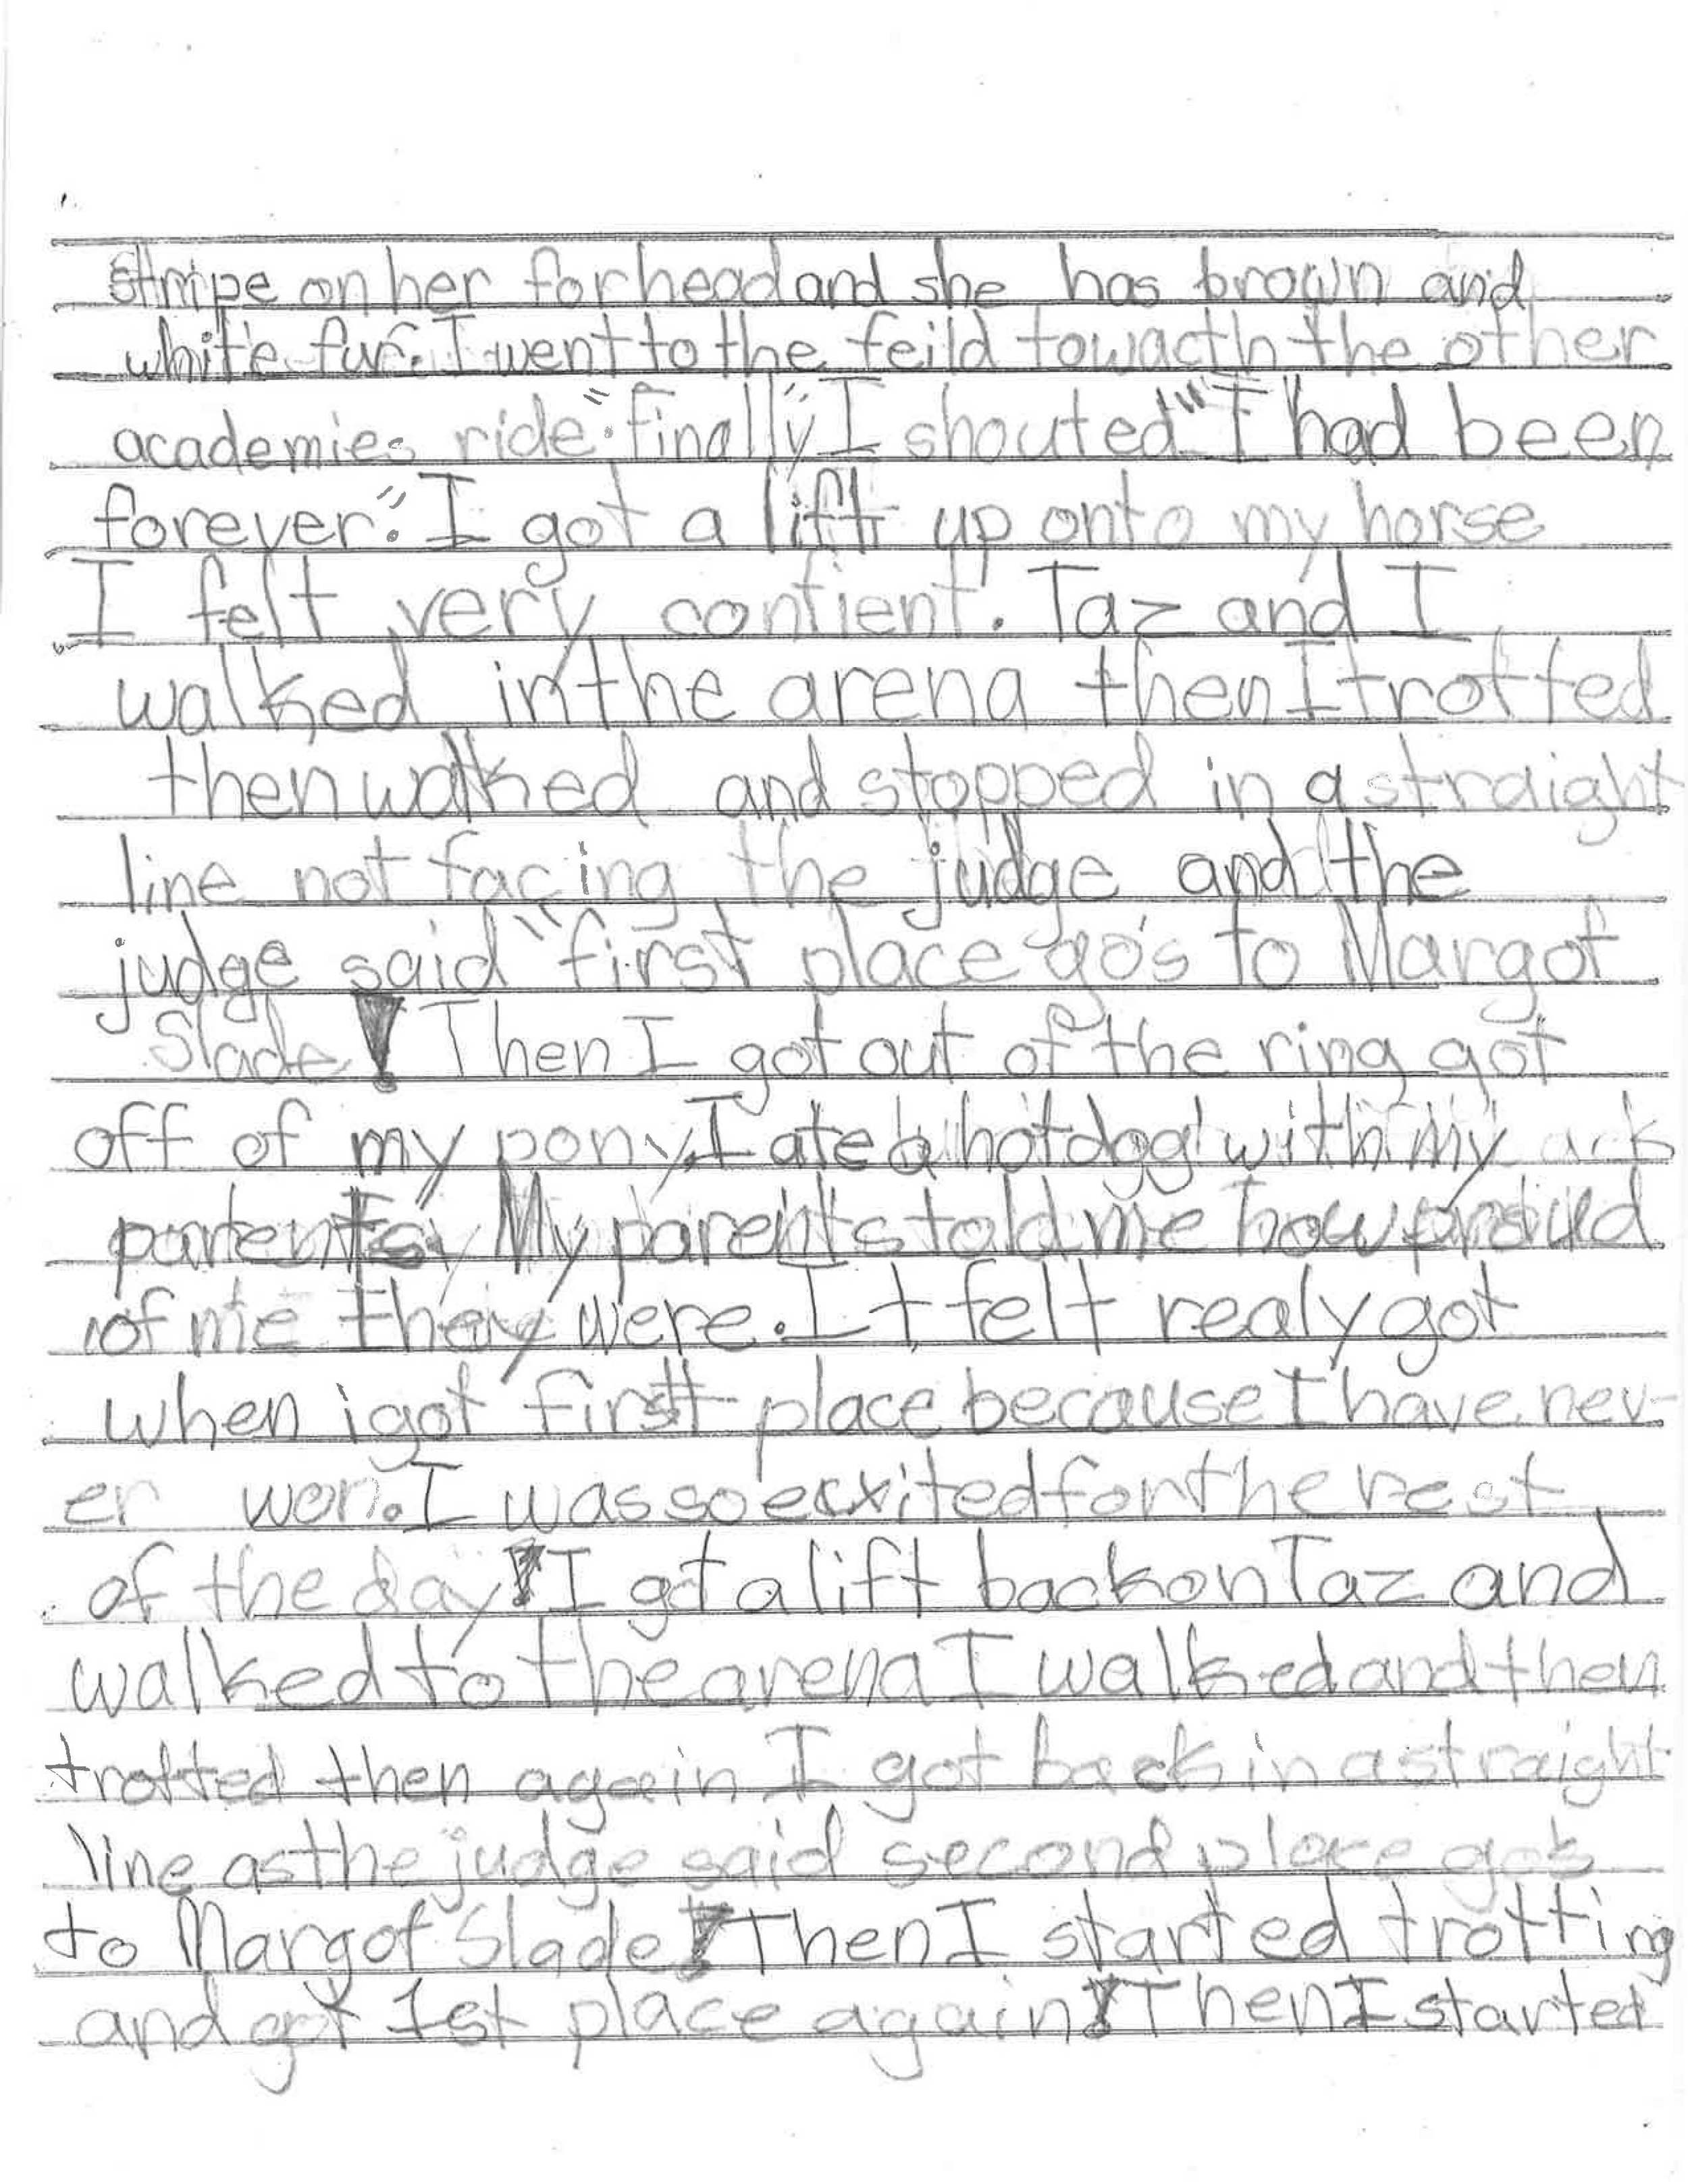 stripe on her forhead and she has brown and
white fur. I went to the feild to wacth the other
academies ride. "finally" I shouted" "I had been
forever." I got a lift up onto my horse
I felt very confient. Taz and I
walked in the arena then I trotted
then walked and stopped in a straight
line not facing the judge and the
judge said "first place go's to Margot
Slade! Then I got out of the ring got
off of my pony. I ate a hotdog with my
parents. My parents told me how proud
of me they were. It felt realy got
when i got first place because I have nev-
er won. I was so ecxited for the rest
of the day! I got a lift back on Taz and
walked to the arena I walked and then
trotted then again I got back in a straight
line as the judge said second place go's
to Margot Slade! Then I started trotting
and got 1st place again! Then I started